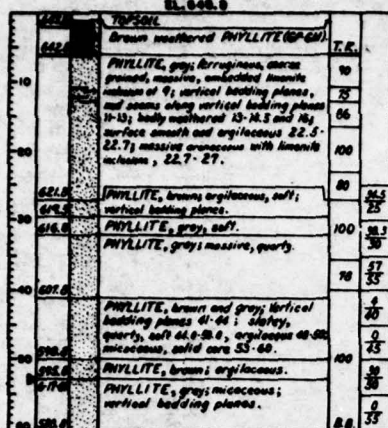 EL. 648.8
TOPSOIL
Brown weathered PHYLLITE (GP-GM)
T.R.
PHYLLITE, gray; ferruginous, coarse
grained, massive, embedded limonite
inclusion at 9; vertical bedding planes,
mud seams along vertical bedding planes
11-13; badly weathered 13-14.5 and 16;
surface smooth and argilaceous 22.5-
22.7; massive arenaceous with limonite
inclusions, 22.7-27.
10
90
75
66
100
20
80
621.8
PHYLLITE, brown; argilaceous, soft;
vertical bedding planes.
25
619.5
30
616.8
PHYLLITE, gray, soft.
100
30
PHYLLITE, gray; massive, quartzy.
78
57
35
40
607.8
PHYLLITE, brown and gray; vertical
bedding planes 41-44; slatey,
quartzy, soft
micaceous, solid core 53-60.
4
40
0
45
50
100
595.8
PHYLLITE, brown; argilaceous.
30
PHYLLITE, gray; micaceous;
vertical bedding planes.
0
35
60